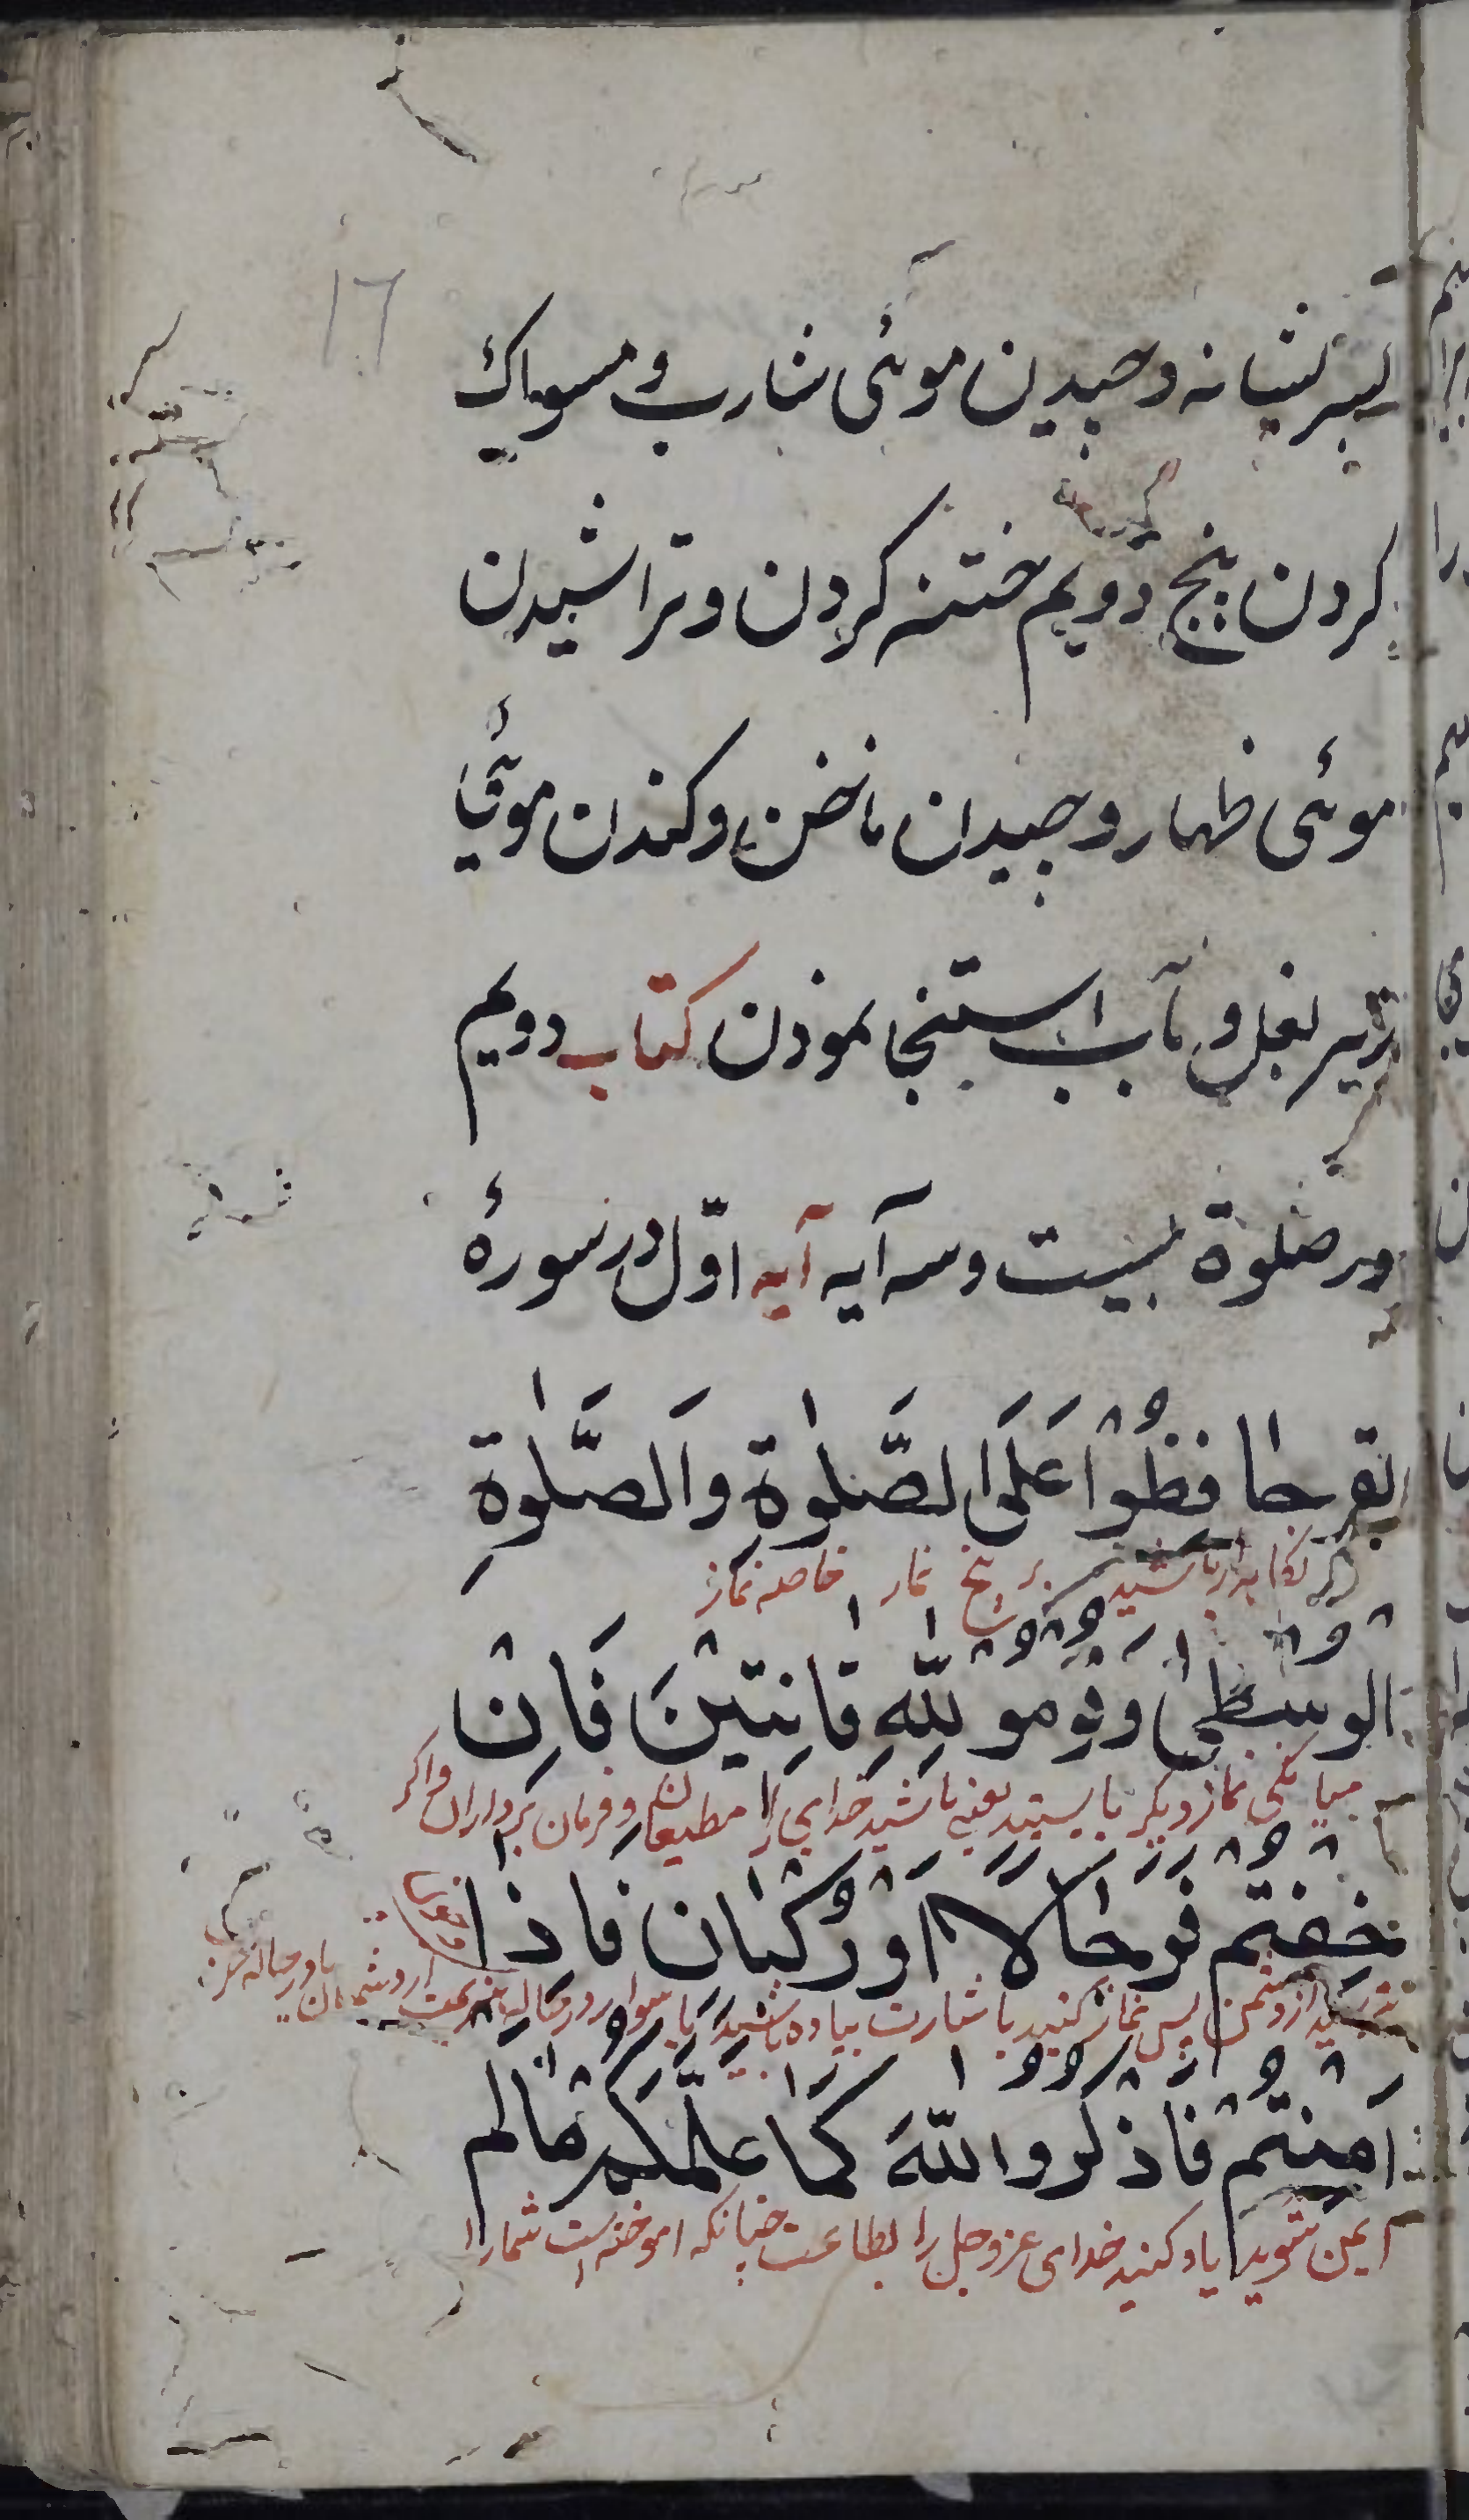 ١٦
بسر بشانه وچیدن موئی شارب و مسواک
کردن پنج دویم ختنه کردن و تراشیدن
موئی ظهار وچیدان ناخن وکندان موئی
زیر بغل و بآب استنجا نمودن کتاب دویم
در صلوة بیست وسه آیه آیه اوّل در سورۀ
بقر حافِظُوْا عَلَی الصَّلٰوةِ وَالصَّلٰوةِ
نکاهدار باشید بر پنج نماز خاصه نماز
الوسطى وَقُومو لِلّٰهِ قانِتِيْنَ فَاِنْ
میانکی نماز دیکر بایستید یعنی باشید خدای را مطیعان و فرمان برداران واکر
خِفْتُم فَرِجَالًا اَوْ رُكْبَان فَاِذا
بترسید از دشمن پس نماز کنید باشارت پیاده باشید یا سوار
اَمِنْتُمْ فَاذْكُروا اللّٰهَ كَمَا عَلَّمَكُمْ مَا لم
ایمن شوید یاد کنید خدای عزوجل را بطاعت چنانکه اموخته است شمارا